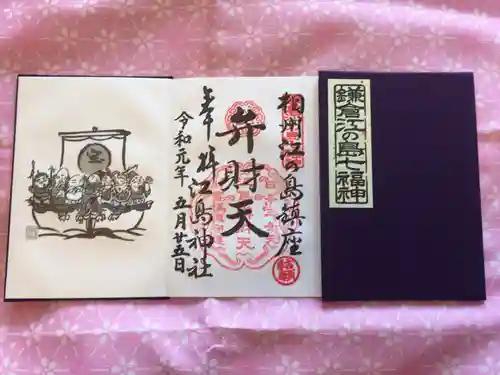 鎌倉江の島七福神
相州江の島鎮座
弁財天
奉拝江島神社
令和元年五月廿五日